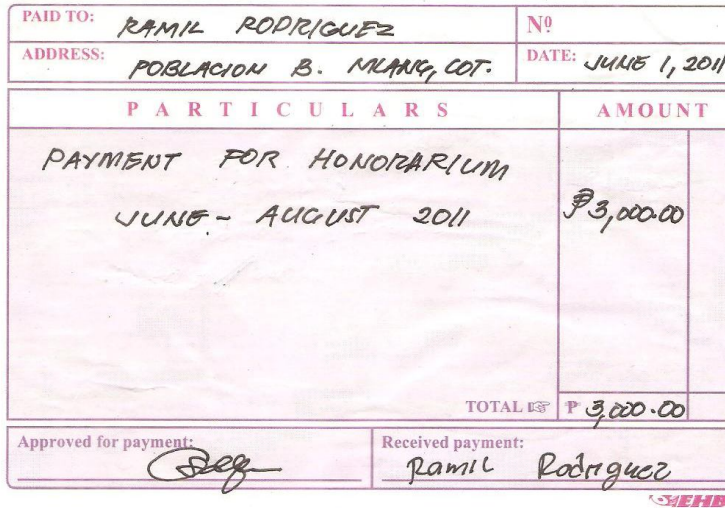 PAID TO: RAMIL RODRIGUEZ
Nº
ADDRESS: POBLACION B. MLANG, COT.
DATE: JUNE 1, 2011
PARTICULARS
AMOUNT
PAYMENT FOR HONORARIUM
JUNE - AUGUST 2011
₱3,000.00
TOTAL ☞ ₱ 3,000.00
Approved for payment:
Received payment:
Ramil Rodriguez